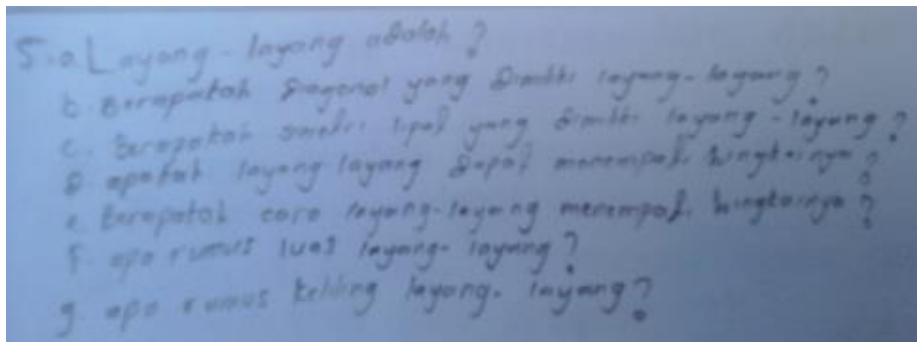 5.a. Layang-layang adalah?
b. Berapakah diagonal yang dimiliki layang-layang?
c. Berapakah simetri lipat yang dimiliki layang-layang?
d. apakah layang-layang dapat menempati bingkainya?
e. Berapakah cara layang-layang menempati bingkainya?
f. apa rumus luas layang-layang?
g. apa rumus keliling layang-layang?